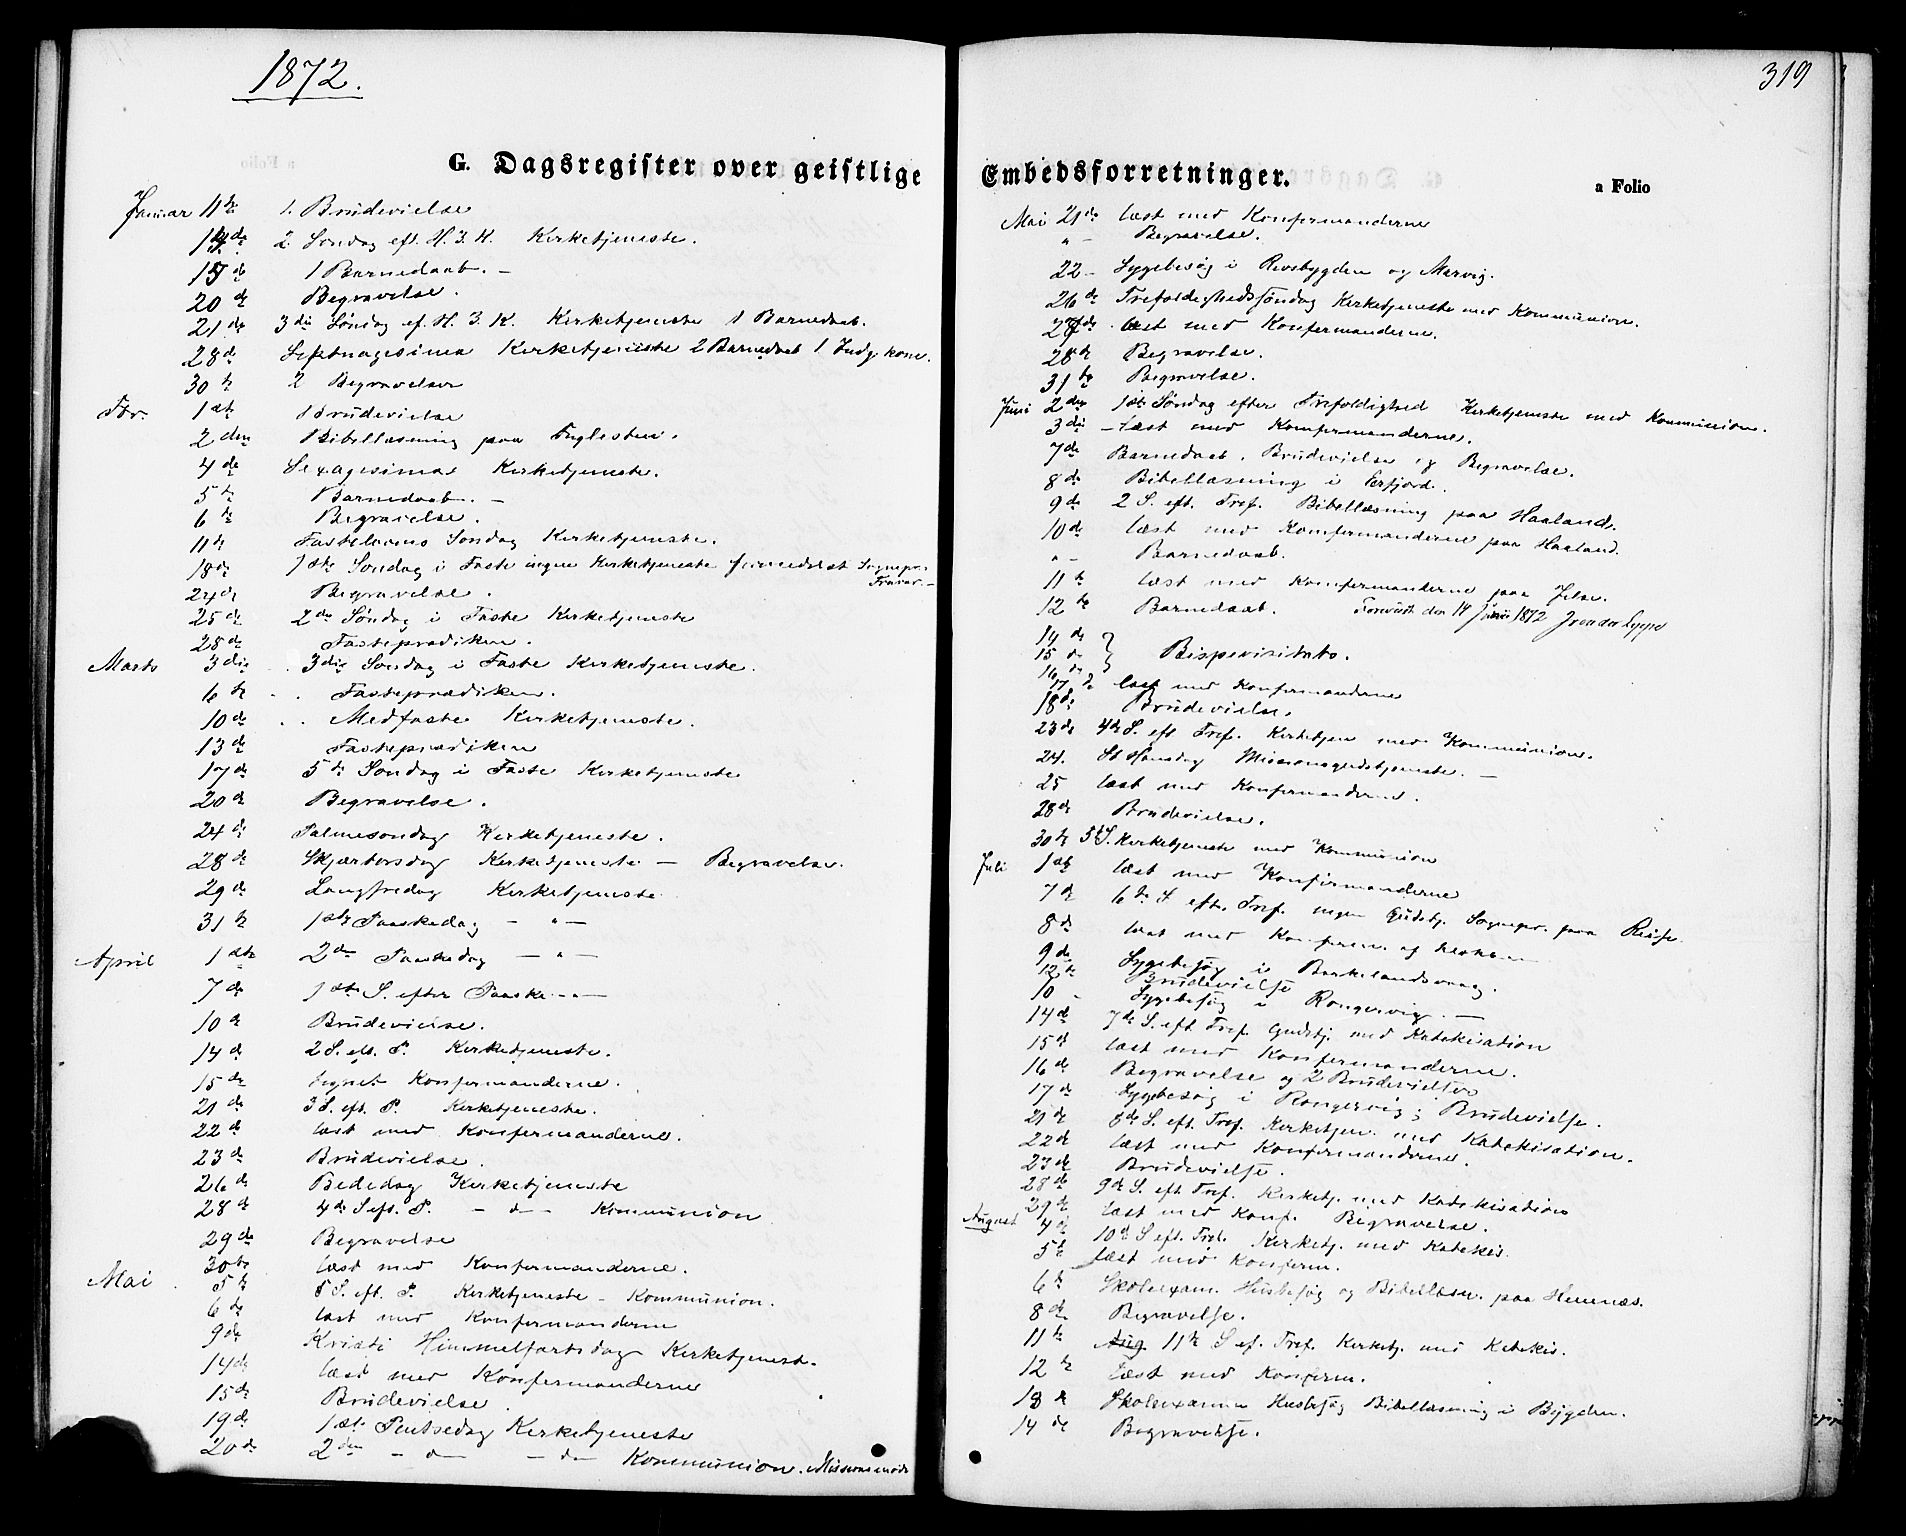 1872.
G. Dagsregister over geistlige
Januar 11te 1. Brudevielse
14de 2. Søndag eft. H. 3. K. Kirketjeneste.
15de 1 Barnedaab. -
20de Begravelse.
21de 3die Søndag ef. H. 3. K. Kirketjeneste 1 Barnedaab.
28de Septuagesima Kirketjeneste 2 Barnedaab 1 Indg. kone.
30te 2 Begravelser
Febr. 1ste 1 Brudevielse
2den Bibellæsning paa Fuglesten.
4de Sexagesima Kirketjeneste.
5te 1 Barnedaab. -
6te Begravelse.
11te Fastelavns Søndag Kirketjeneste.
18de 1ste Søndag i Faste ingen Kirketjeneste formedelst Sognepr.
Fravær. -
24de Begravelse.
25de 2den Søndag i Faste Kirketjeneste
28de Fasteprædiken.
Marts 3die 3die Søndag i Faste Kirketjeneste.
6te Fasteprædiken.
10de Medfaste Kirketjeneste.
13de Fasteprædiken
17de 5te Søndag i Faste Kirketjeneste
20de Begravelse.
24de Palmesøndag Kirketjeneste.
28de Skjærtorsdag Kirketjeneste - Begravelse.
29de Langfredag Kirketjeneste
31te 1ste Paaskedag - " -
April 1ste 2den Paaskedag - " -
7de 1ste S. efter Paaske - " -
10de Brudevielse.
14de 2 S. eft. P. Kirketjeneste.
15de Tegnet Konfirmanderne.
21de 3 S. eft. P. Kirketjeneste.
22de læst med Konfirmanderne.
23de Brudevielse.
26de Bededag Kirketjeneste
28de 4de S. eft. P. - do - Kommunion
29de Begravelse
30te læst med Konfirmanderne.
Mai 5te 5 S. eft. P. Kirketjeneste - Kommunion.
6de læst med Konfirmanderne
9de Kristi Himmelfartsdag Kirketjenest.
14de læst med Konfirmanderne
15de Brudevielse.
19de 1ste Pintsedag Kirketjeneste
20de 2den - do - do - Kommunion. Missionsmøde
319
Embedsforretninger.
a Folio
Mai 21de læst med Konfirmanderne
" - Begravelse.
22 - Sygebesøg i Revsbygden og Marvig.
26de Trefoldighedssøndag Kirketjeneste med Kommunion.
27de læst med Konfirmanderne.
28de Begravelse.
31te Begravelse.
Juni 2den 1ste Søndag efter Trefoldighed Kirketjeneste med Kommunion.
3die - læst med Konfirmanderne.
7de Barnedaab. Brudevielse og Begravelse.
8de Bibellæsning i Erfjord.
9de 2 S. eft. Tref. Bibellæsning paa Haaland.
10de læst med Konfirmanderne paa Haaland.
" - Barnedaab.
11te læst med Konfirmanderne paa Jelse.
12te Barnedaab. Forevist den 14 Juni 1872 J von der Lippe
14de
15de } Bispevisitats.
16de
17de læst med Konfirmanderne
18de Brudevielse.
23de 4de S. eft Tref. Kirketjen med Kommunion.
24. St Hansdag Missionsgudstjeneste. -
25 læst med Konfirmanderne.
28de Brudevielse.
30te 5te S. Kirketjeneste med Kommunion
Juli 1ste læst med Konfirmanderne
7de 6te S. eft. Tref. ingen Gudstj. Sognepr. paa Reise.
8de læst med Konfirm. og
9de Sygebesøg i Barkelandsvaag.
12te Brudevielse
10 - Sygebesøg i Rongervig. -
14de 7de S. eft Tref. Gudstj. med Katekisation
15de læst med Konfirmanderne.
16de Begravelse og 2 Brudevielser
17de Sygebesøg i Rongervig; Brudevielse.
21de 8de S. eft. Tref. Kirketjen. med Katekisation.
22de læst med Konfirmanderne.
23de Brudevielse.
28de 9de S. eft Tref. Kirketj. med Katekisation
29de læst med Konf. Begravelse.
August 4de 10de S eft. Tref. Kirketj. med Katekis.
5te læst med Konfirm.
6te Skolexam. Husbesøg og Bibellæsn. paa Hennæs.
8de Begravelse.
11te Aug 11te S ef. Tref. Kirketj. med Katekis.
12te læst med Konfirm.
13de Skolexamen Husbesøg Bibellæsning i Bygden.
14de Begravelse.